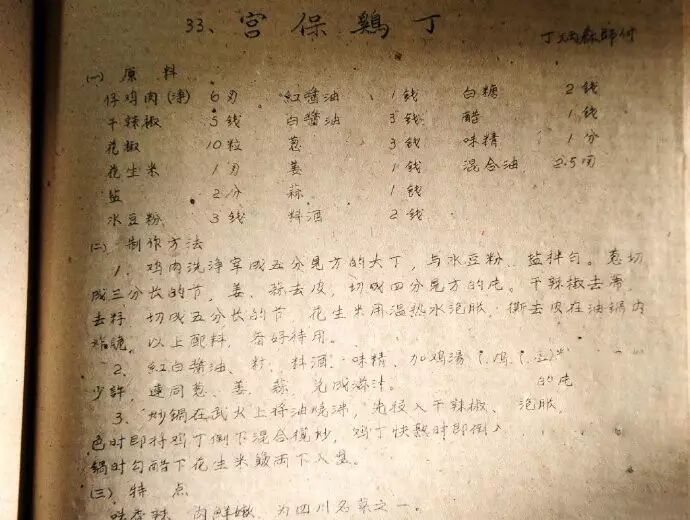 33、宫保鷄丁
丁 師付
(一) 原料
仔鸡肉(净) 6刃 紅醬油 1钱 白糖 2钱
干辣椒 5钱 白醬油 3钱 醋 1钱
花椒 10粒 葱 3钱 味精 1分
花生米 1刃 姜 1钱 混合油 2.5刃
盐 2分 蒜 1钱
水豆粉 3钱 料酒 2钱
(二) 制作方法
1、鸡肉洗净宰成五分見方的大丁，与水豆粉、盐拌匀。葱切
成三分长的节，姜、蒜去皮，切成四分見方的 。干辣椒去蒂，
去籽，切成五分长的节，花生米用温热水泡胀，撕去皮在油鍋内
炸脆。以上配料，备好待用。
2、紅白醬油、 料酒、味精、加鸡湯
少許，連同葱、姜、蒜、兑成滋汁。 的
3、炒鍋在武火上将油燒沸，先投入干辣椒、
色时即将鸡丁倒下混合 炒，鸡丁快熟时即倒入
鍋时勾醋下花生米 两下入盘。
(三) 特点
味香辣，肉鮮嫩，为四川名菜之一。